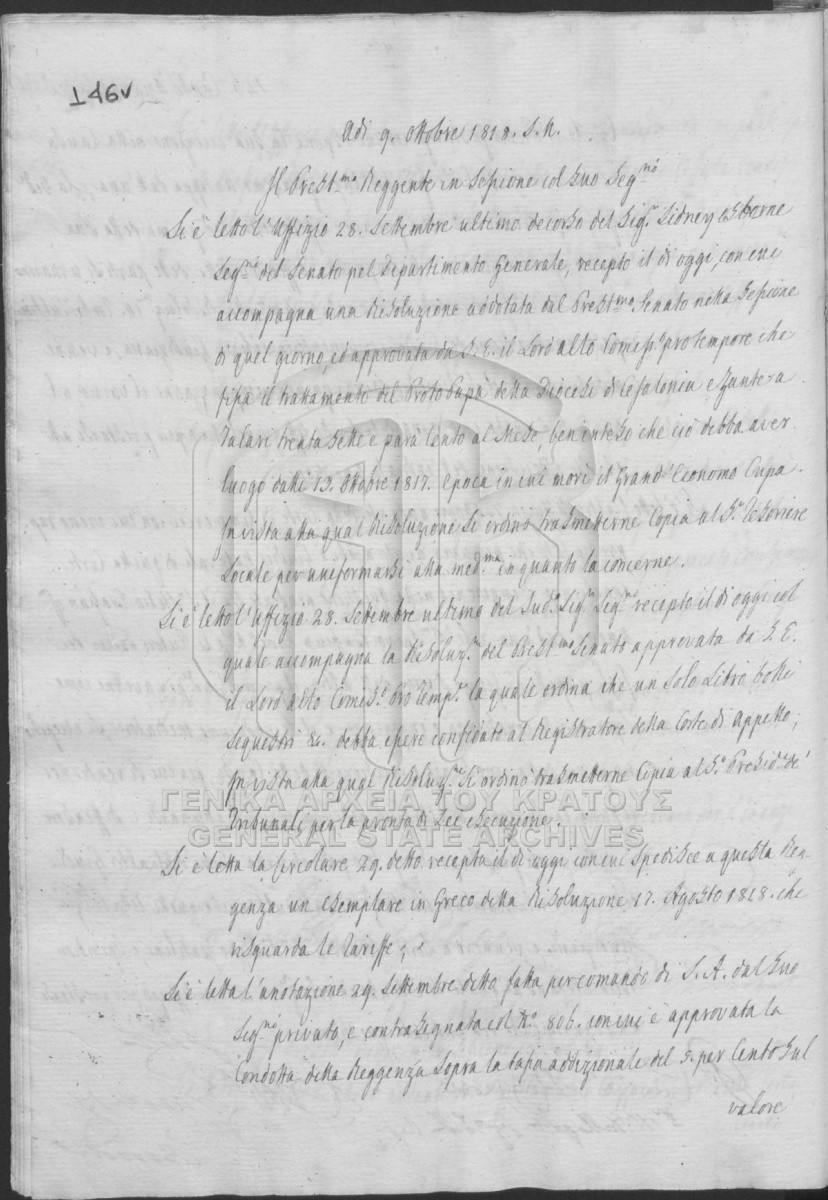 146v
Adi 9. Ottobre 1818. S.N.
Il Prestmo Reggente in Sessione col suo Segrio
Si è letto l'Uffizio 28. Settembre ultimo decorso del Sigr Sidney Osborne
Segrio del Senato pel Dipartimento Generale, recepto il dì oggi, con cui
accompagna una Risoluzione addotata dal Prestmo Senato nella Sessione
di quel giorno, ed approvata da S. E. il Lord alto Comesso pro tempore che
fissa il trattamento del Proto Papà della Diocesi di Cefalonia e Zante a
Talari trenta sette e parà cento al Mese, ben enteso che ciò debba aver
luogo dalli 12. Ottobre 1817. epoca in cui morì il Grand' Economo
In vista alla qual Risoluzione si ordinò trasmetterne Copia al Sr Tesoriere
Locale per uneformarsi alla medma in quanto la concerne.
Si è letto l'Uffizio 28. Settembre ultimo del sudo Sigr Segrio recepto il dì oggi col
quale accompagna la Risoluze del Prestmo Senato approvata da S. E.
il Lord alto Comeso Pro Tempe la quale ordina che un solo Libro bolli
sequestri &. debba essere confidato al Registratore della Corte di Appello;
In vista alla qual Risoluze si ordinò trasmetterne Copia al Sr Preside de'
Tribunali per la pronta di Lei esecuzione.
ΓΕΝΙΚΑ ΑΡΧΕΙΑ ΤΟΥ ΚΡΑΤΟΥΣ
GENERAL STATE ARCHIVES
Si è letta la Circolare 29. detto recepta il dì oggi con cui spedisce a questa Reg-
genza un esemplare in Greco della Risoluzione 17. Agosto 1818. che
risguarda le Tariffe;
Si è letta l'anotazione 29. Settembre detto fatta per comando di S. A. dal suo
Segrio privato, e contrasegnata col No 806. con cui è approvata la
Condotta della Reggenza sopra la tassa addizionale del 5. per Cento sul
valore